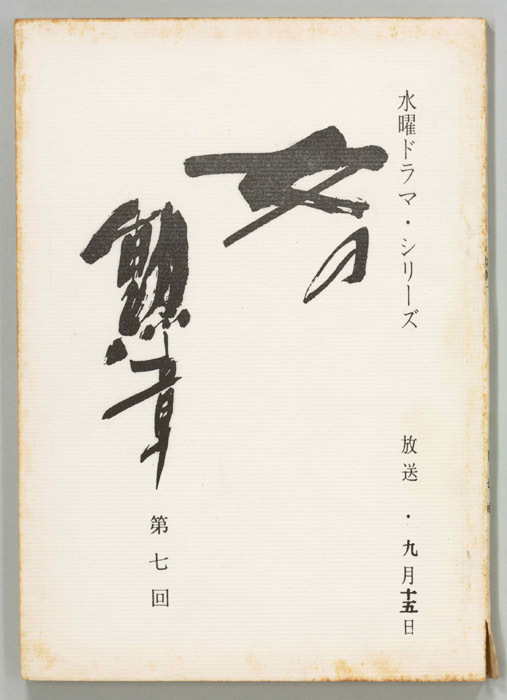 水曜ドラマ・シリーズ
放送・九月十五日
女の
勲章
第七回